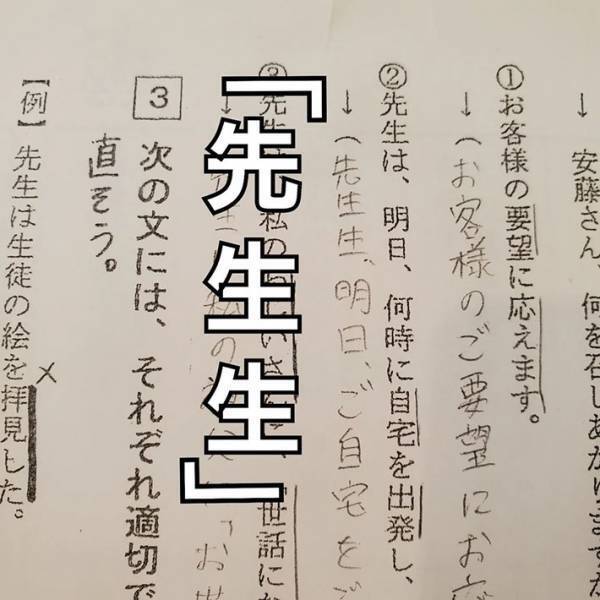 ↓ 安藤さん、何を召しあがりますか
①お客様の要望に応えます。
↓（お客様のご要望にお応
②先生は、明日、何時に自宅を出発し、
↓（先生生、明日、ご自宅をご
③先 私の いさ 、世話にな
↓ 私の 父 「お世
「先生生」
3 次の文には、それぞれ適切で
直そう。
【例】先生は生徒の絵を拝見した。
×